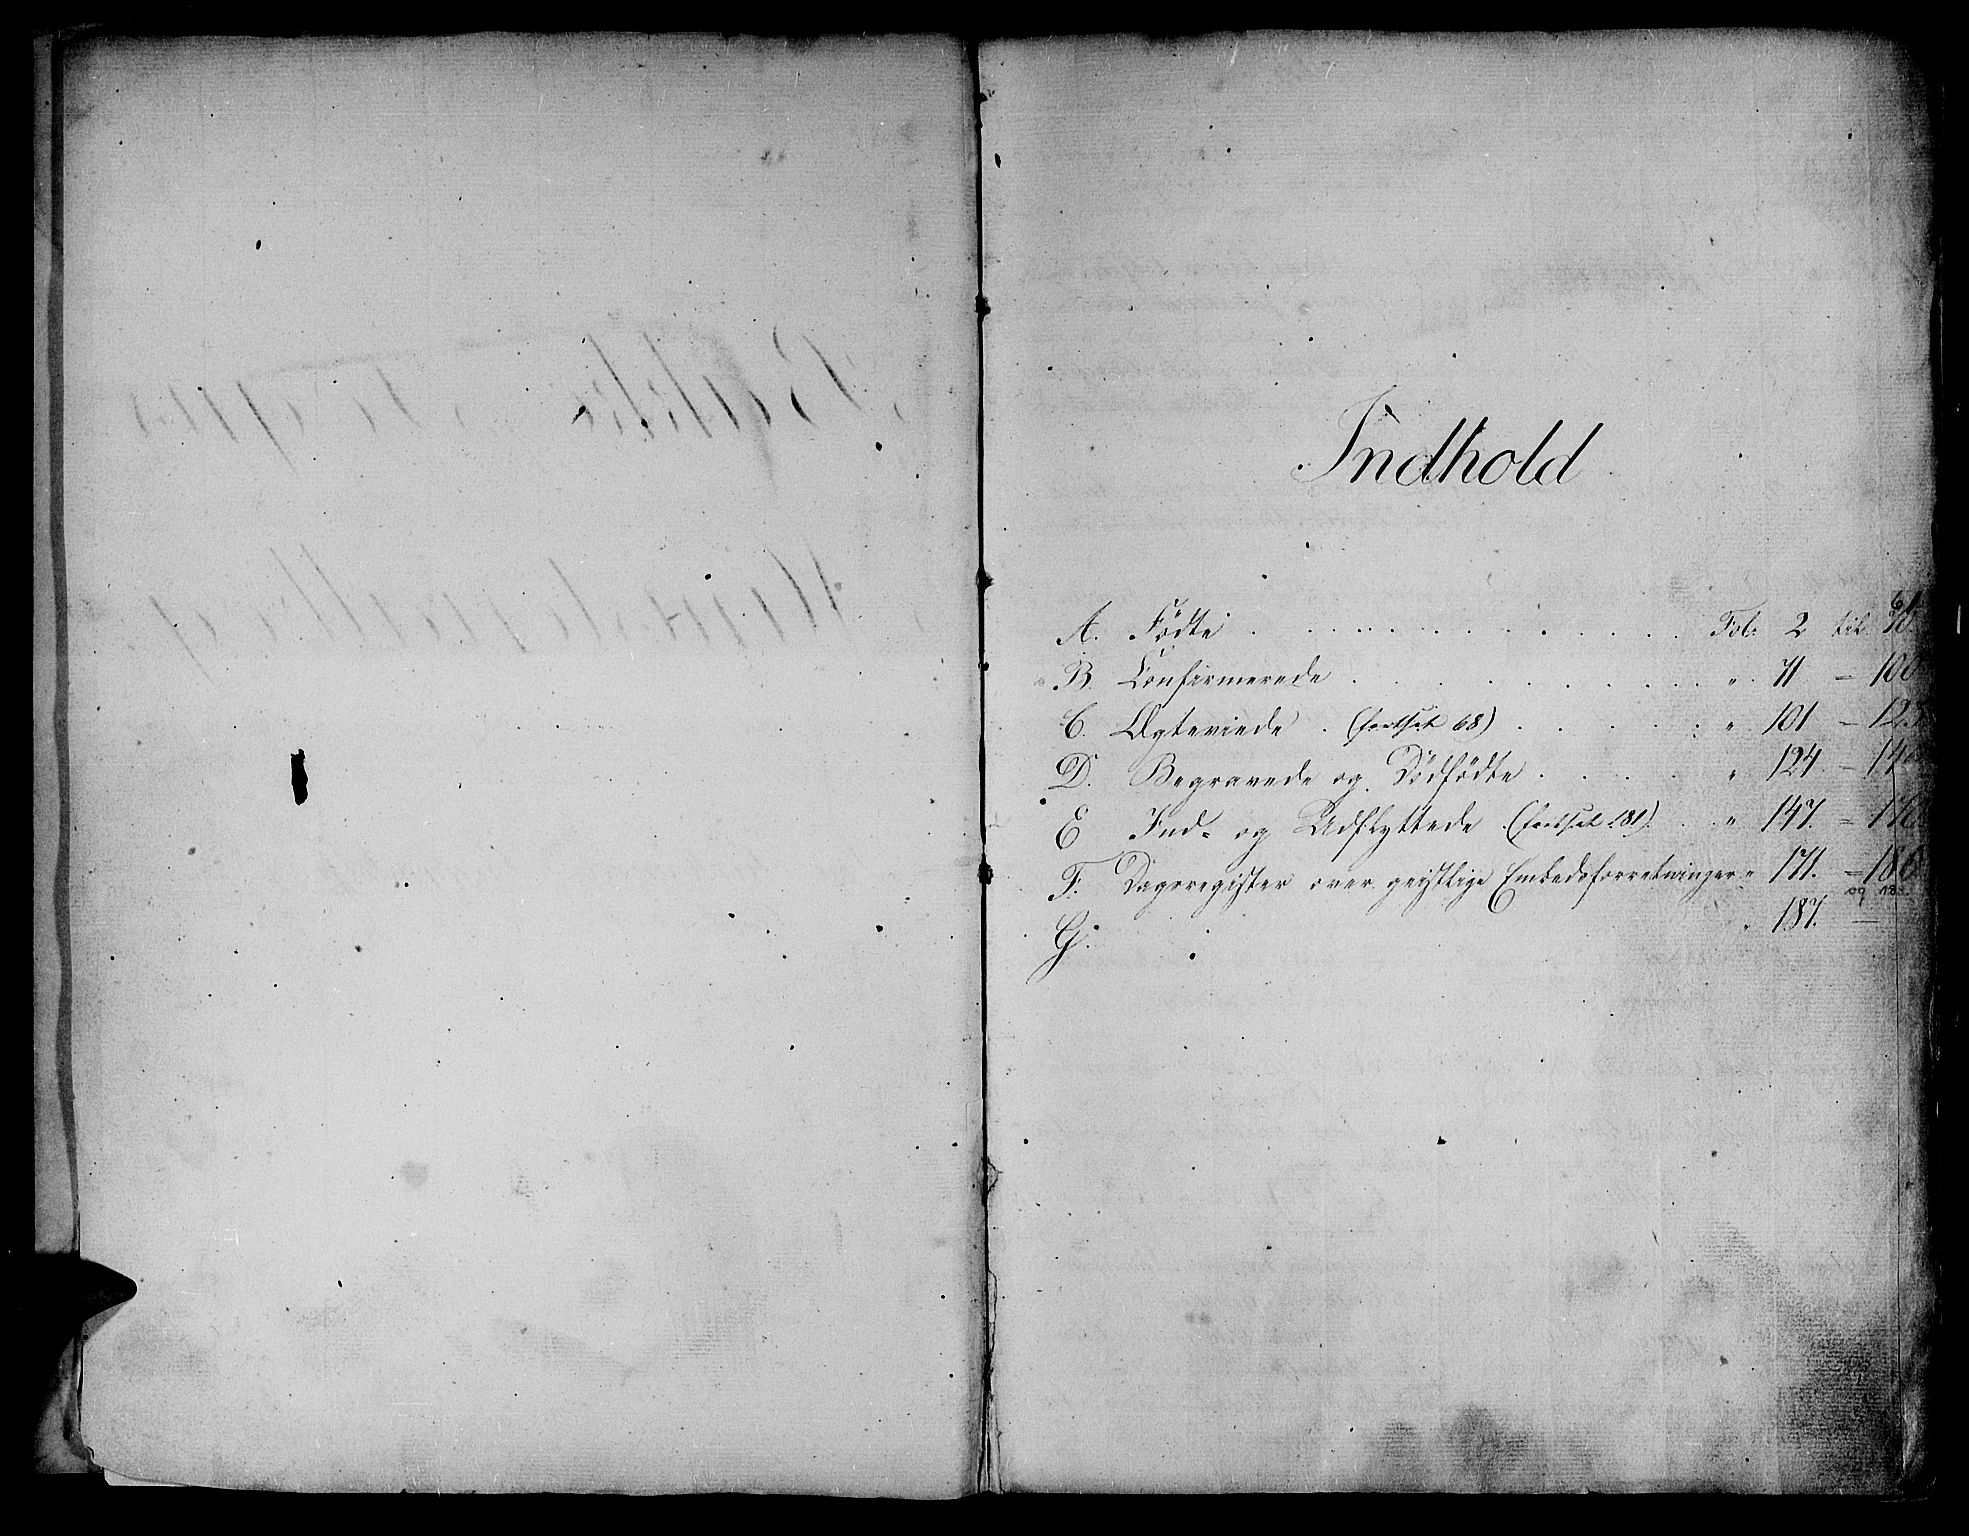 Indhold
A. Fødte . . . . . . . . . . . Fol: 2 til
B. Confirmerede . . . . . . . . . . " 71 – 100
C. Ægteviede . (fortsat 68) . . . . . " 101 – 123
D. Begravede og Dødfødte . . . . " 124 –
E Ind- og Udflyttede (fortsat 181) . . " 147. –
F. Dagsregister over geistlige Embedsforretninger " 171. – 186
og
G. " 187. –